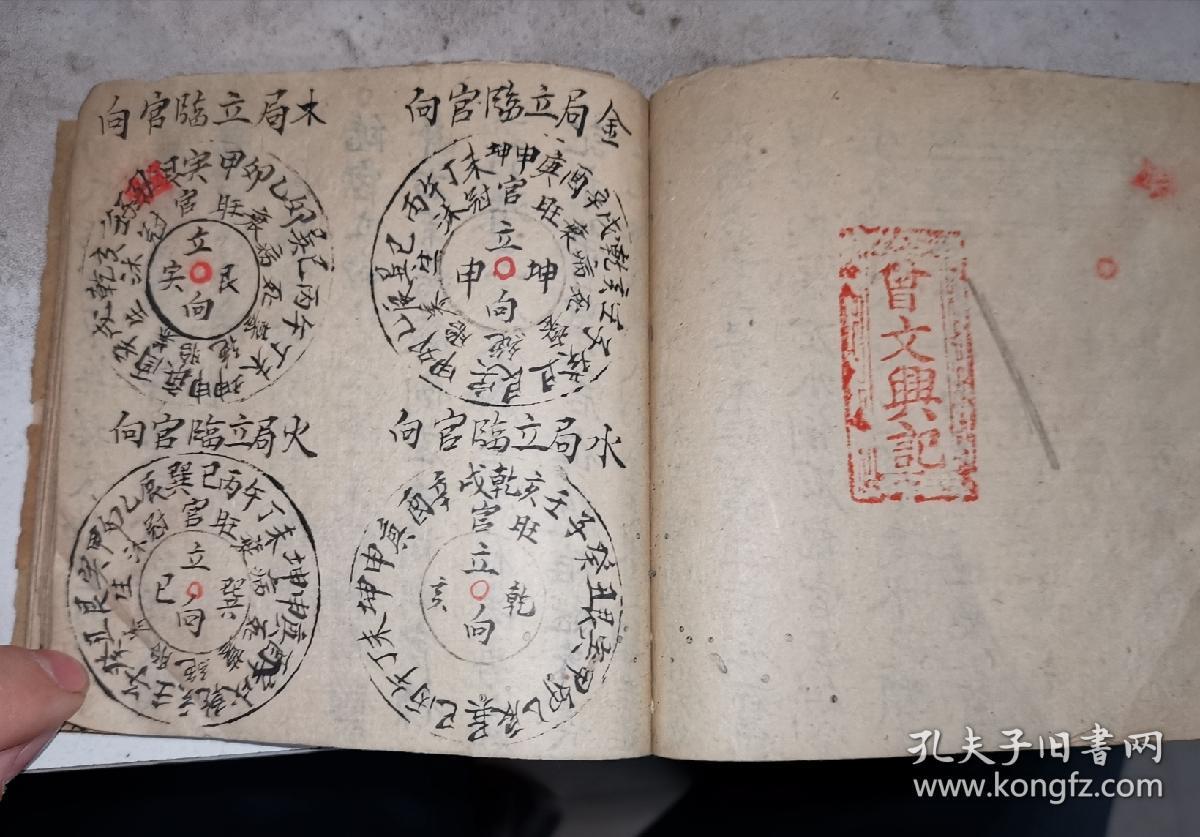 金局立臨官向
坤申庚酉辛戌乾亥壬子癸丑艮寅甲卯乙辰巽巳丙午丁未
官旺衰病死墓絕胎養生沐冠
立向
坤申
木局立臨官向
官旺衰病死墓絕胎養生沐冠
立向
艮寅
水局立臨官向
乾亥壬子癸丑艮寅甲卯乙辰巽巳丙午丁未坤申庚酉辛戌
官旺
立向
乾亥
火局立臨官向
巽巳丙午丁未坤申庚酉辛戌乾亥壬子癸丑艮寅甲卯乙辰
官旺衰病死墓絕胎養生沐冠
立向
巽巳
曾文興記
孔夫子旧书网
www.kongfz.com